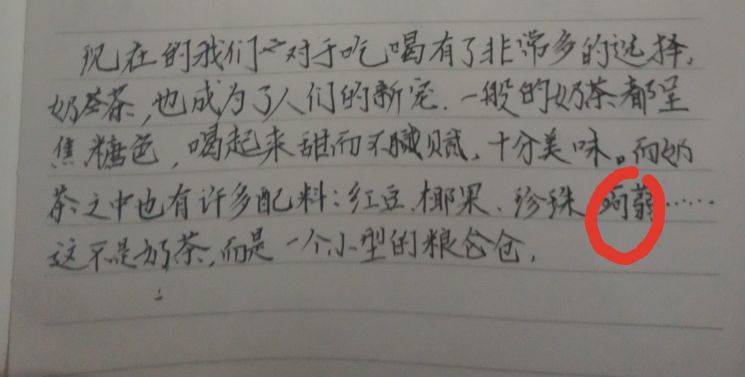 现在的我们对于吃喝有了非常多的选择,
奶茶,也成为了人们的新宠.一般的奶茶都呈
焦糖色,喝起来甜而不腻,十分美味。而奶
茶之中也有许多配料:红豆、椰果、珍珠、蒟蒻……
这不是奶茶,而是一个小型的粮仓.